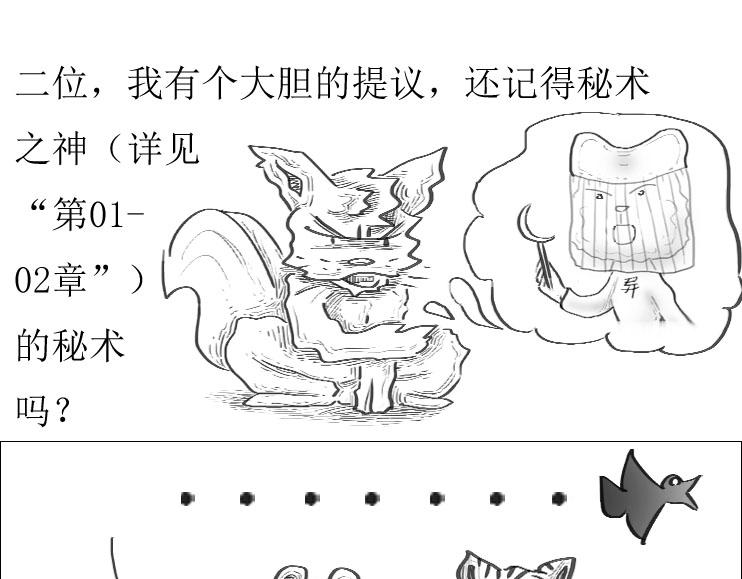 二位，我有个大胆的提议，还记得秘术
之神（详见
“第01-
02章”）
的秘术
吗？
异